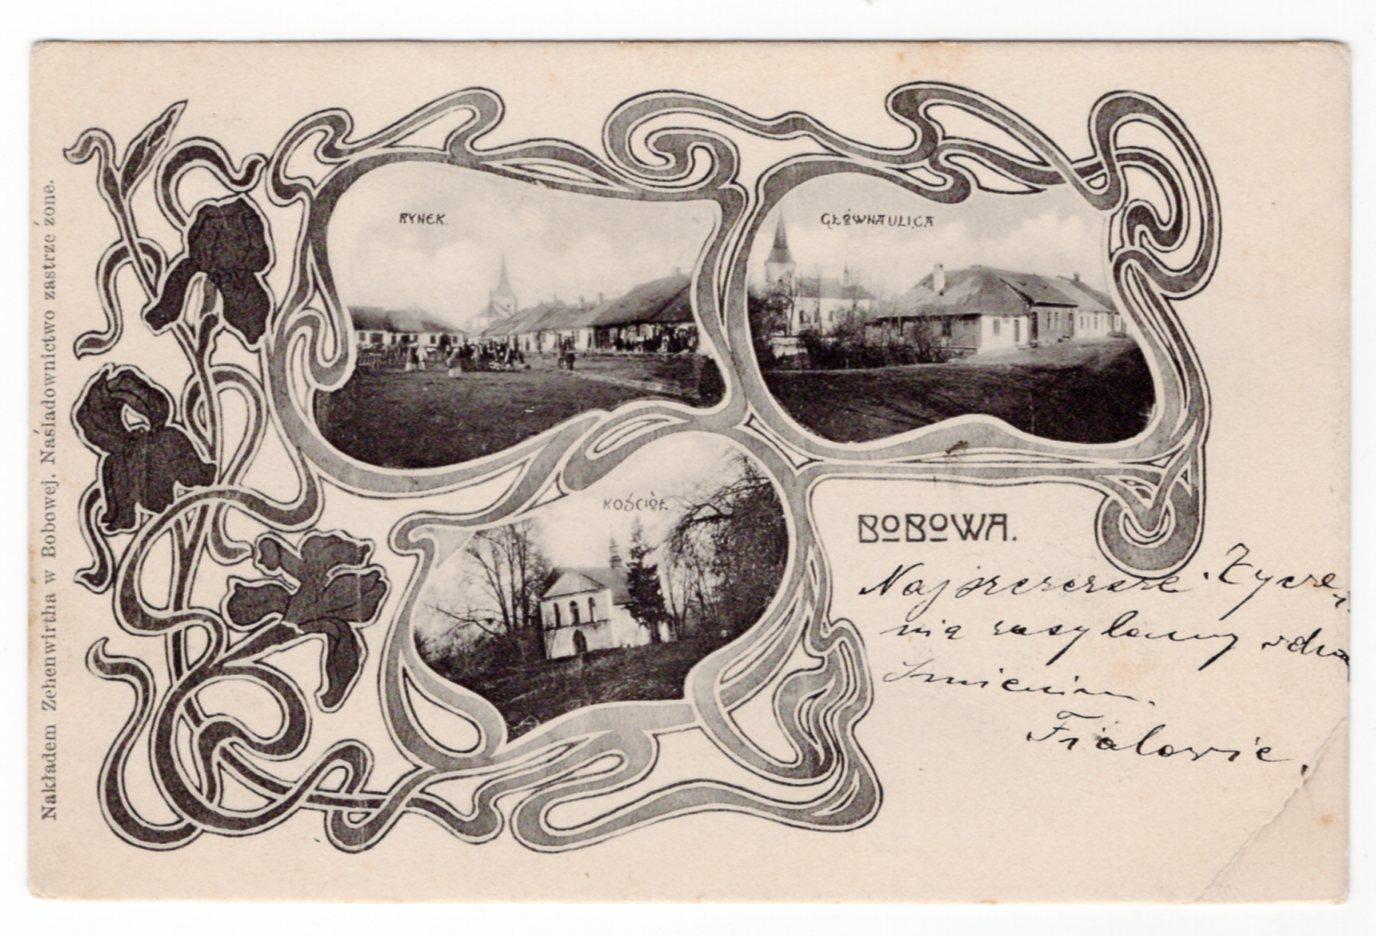 Nakładem Zehenwirtha w Bobowej. Naśiadownictwo zastrzeżone.
RYNEK.
GŁÓWNA ULICA
KOŚCIÓŁ
BOBOWA.
Najszczersze Życze-
nia zasyłamy
Imienin
Fialowie.